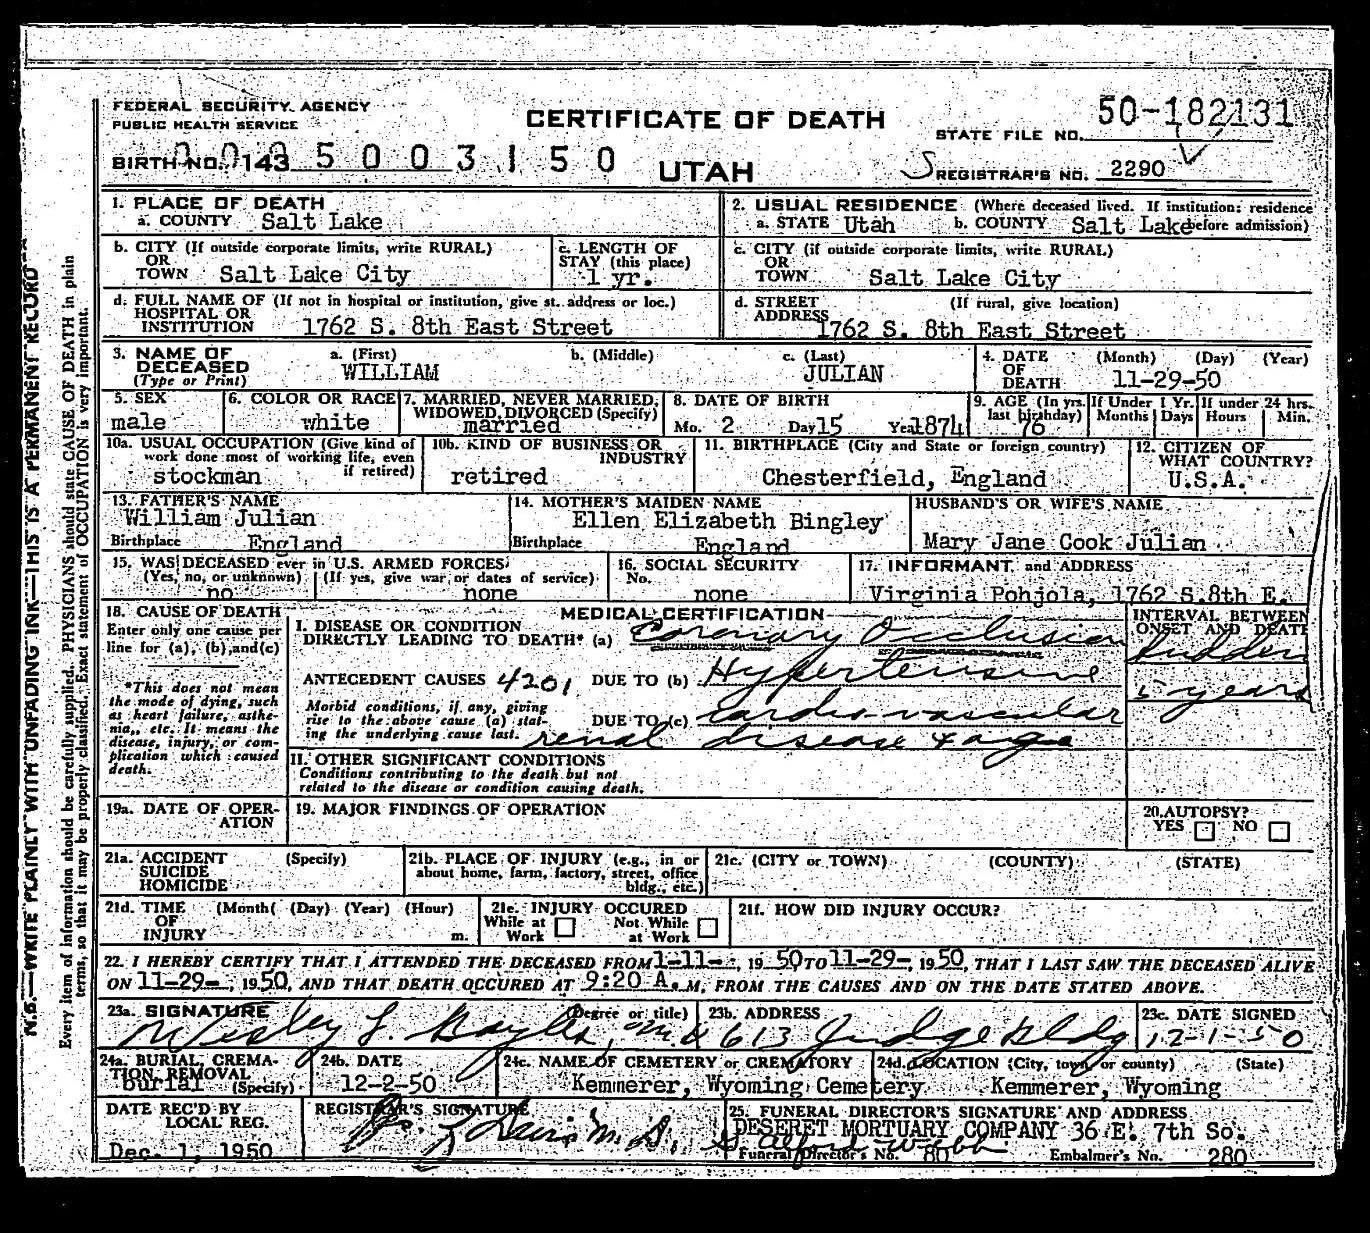 FEDERAL SECURITY AGENCY
PUBLIC HEALTH SERVICE
CERTIFICATE OF DEATH
STATE FILE NO. 50-182131
BIRTH NO. 143 5003150
UTAH
REGISTRAR'S NO. 2290
1. PLACE OF DEATH
a. COUNTY Salt Lake
2. USUAL RESIDENCE (Where deceased lived. If institution: residence before admission)
a. STATE Utah b. COUNTY Salt Lake
b. CITY (If outside corporate limits, write RURAL)
OR
TOWN Salt Lake City
c. LENGTH OF
STAY (this place)
1 yr.
c. CITY (if outside corporate limits, write RURAL)
OR
TOWN Salt Lake City
d. FULL NAME OF (If not in hospital or institution, give st. address or loc.)
HOSPITAL OR
INSTITUTION 1762 S. 8th East Street
d. STREET (If rural, give location)
ADDRESS 1762 S. 8th East Street
3. NAME OF
DECEASED
(Type or Print)
a. (First) b. (Middle) c. (Last)
WILLIAM JULIAN
4. DATE
OF
DEATH
(Month) (Day) (Year)
11-29-50
5. SEX
male
6. COLOR OR RACE
white
7. MARRIED, NEVER MARRIED,
WIDOWED, DIVORCED (Specify)
married
8. DATE OF BIRTH
Mo. 2 Day 15 Year 1874
9. AGE (In yrs.
last birthday)
76
If Under 1 Yr.
Months Days
If under 24 hrs.
Hours Min.
10a. USUAL OCCUPATION (Give kind of
work done most of working life, even
if retired)
stockman
10b. KIND OF BUSINESS OR
INDUSTRY
retired
11. BIRTHPLACE (City and State or foreign country)
Chesterfield, England
12. CITIZEN OF
WHAT COUNTRY?
U.S.A.
13. FATHER'S NAME
William Julian
Birthplace England
14. MOTHER'S MAIDEN NAME
Ellen Elizabeth Bingley
Birthplace England
HUSBAND'S OR WIFE'S NAME
Mary Jane Cook Julian
15. WAS DECEASED ever in U.S. ARMED FORCES?
(Yes, no, or unknown) (If yes, give war or dates of service)
no none
16. SOCIAL SECURITY
No.
none
17. INFORMANT and ADDRESS
Virginia Pohjola, 1762 S.8th E.
18. CAUSE OF DEATH
Enter only one cause per
line for (a), (b), and (c)
*This does not mean
the mode of dying, such
as heart failure, asthe-
nia, etc. It means the
disease, injury, or com-
plication which caused
death.
MEDICAL CERTIFICATION
I. DISEASE OR CONDITION
DIRECTLY LEADING TO DEATH* (a) Coronary Occlusion
ANTECEDENT CAUSES 4201 DUE TO (b) Hypertensive
Morbid conditions, if any, giving
rise to the above cause (a) stat-
ing the underlying cause last.
DUE TO (c) cardio-vascular
renal disease & age
INTERVAL BETWEEN
ONSET AND DEATH
Sudden
5 years
II. OTHER SIGNIFICANT CONDITIONS
Conditions contributing to the death but not
related to the disease or condition causing death.
19a. DATE OF OPER-
ATION
19. MAJOR FINDINGS OF OPERATION
20. AUTOPSY?
YES NO
21a. ACCIDENT (Specify)
SUICIDE
HOMICIDE
21b. PLACE OF INJURY (e.g., in or
about home, farm, factory, street, office
bldg., etc.)
21c. (CITY or TOWN) (COUNTY) (STATE)
21d. TIME (Month( (Day) (Year) (Hour)
OF
INJURY m.
21e. INJURY OCCURED
While at Work Not While at Work
21f. HOW DID INJURY OCCUR?
22. I HEREBY CERTIFY THAT I ATTENDED THE DECEASED FROM 1-11-, 1950 TO 11-29-, 1950, THAT I LAST SAW THE DECEASED ALIVE
ON 11-29-, 1950, AND THAT DEATH OCCURED AT 9:20 A.M. FROM THE CAUSES AND ON THE DATE STATED ABOVE.
23a. SIGNATURE (Degree or title)
Wesley L. Bayles, M.D.
23b. ADDRESS
613 Judge Bldg
23c. DATE SIGNED
12-1-50
24a. BURIAL, CREMA-
TION, REMOVAL
burial (Specify)
24b. DATE
12-2-50
24c. NAME OF CEMETERY or CREMATORY
Kemmerer, Wyoming Cemetery
24d. LOCATION (City, town, or county) (State)
Kemmerer, Wyoming
DATE REC'D BY
LOCAL REG.
Dec. 1, 1950
REGISTRAR'S SIGNATURE
Davis M.D.
25. FUNERAL DIRECTOR'S SIGNATURE AND ADDRESS
DESERET MORTUARY COMPANY 36 E. 7th So.
Alford Webb
Funeral Director's No. 80 Embalmer's No. 280
N.B.—WRITE PLAINLY WITH UNFADING INK—THIS IS A PERMANENT RECORD
Every item of information should be carefully supplied. PHYSICIANS should state CAUSE OF DEATH in plain
terms, so that it may be properly classified. Exact statement of OCCUPATION is very important.